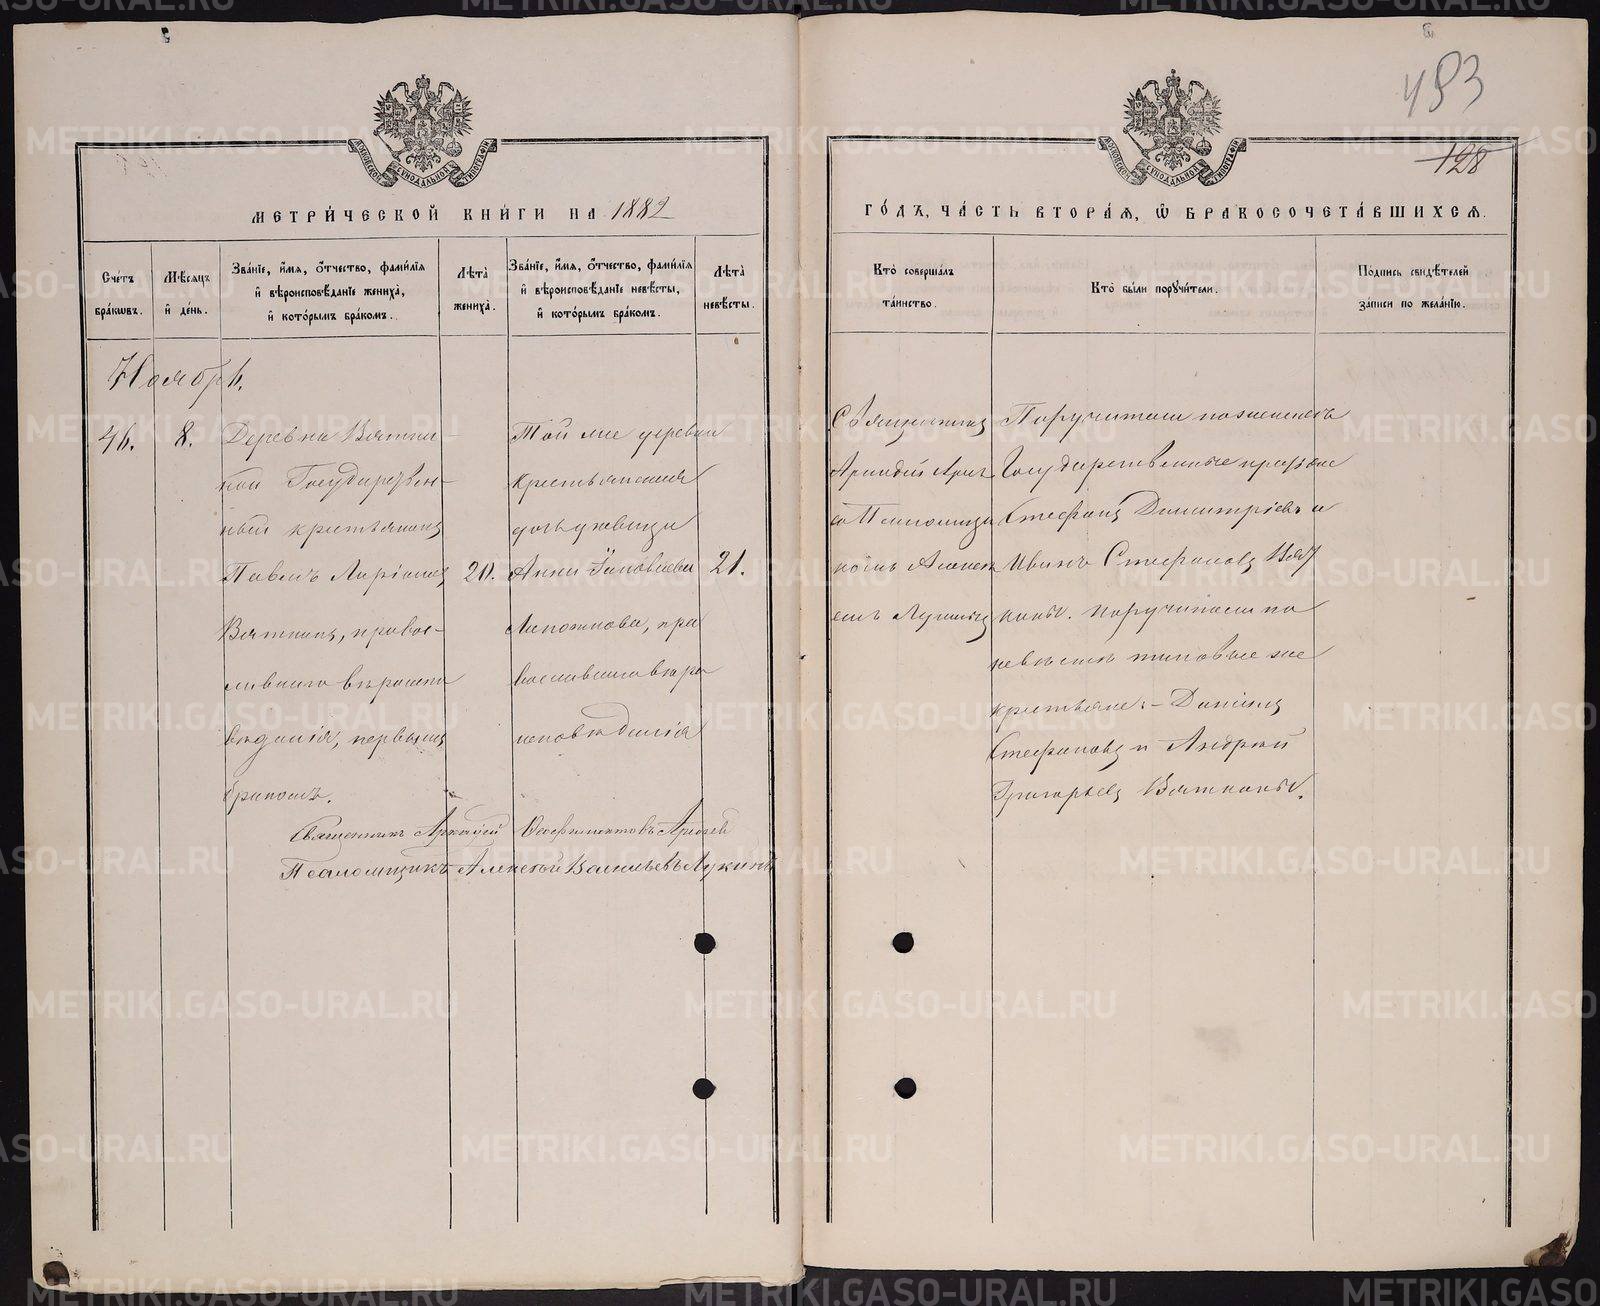 483
128
МЕТРИ́ЧЕСКОЙ КНИ́ГИ НА 1882
ГО́ДЪ, ЧА́СТЬ ВТОРА́Я, Ѡ БРАКОСОЧЕТА́ВШИХСЯ.
Счётъ бра́кѡвъ.
Мѣ́сяцъ и де́нь.
Зва́нїе, и́мя, о́тчество, фами́лїя
и вѣроисповѣ́данїе жениха̀,
и кото́рымъ бра́комъ.
Лѣта̀ жениха̀.
Зва́нїе, и́мя, о́тчество, фами́лїя
и вѣроисповѣ́данїе невѣ́сты,
и кото́рымъ бра́комъ.
Лѣта̀ невѣ́сты.
Кто̀ соверша́лъ
та́инство.
Кто̀ бы́ли поручи́тели.
Подпись свидѣ́телей
за́писи по жела́нїю.
Ноябрь.
46.
8.
Деревни Вяткиной
Государствен-
ный крестьянинъ
Павелъ
Вяткинъ, правос-
лавнаго вѣроиспо
вѣданія, первымъ
бракомъ.
20.
Той же деревни
крестьянская
дочь дѣвица
Анна
православнаго вѣро
исповѣданія
21.
Священникъ
Аркадій
Псаломщи
комъ Алексѣ
емъ Лукинымъ
Поручители по женихѣ
Государственные крестьяне
Стефанъ Димитріевъ и
Иванъ Стефановъ Вят
кины. Поручители по
невѣстѣ таковые же
крестьяне:
Стефановъ и Андрей
Григорьевъ Вяткины.
Священникъ Аркадій
Псаломщикъ Алексѣй Васильевъ Лукинъ
METRIKI.GASO-URAL.RU